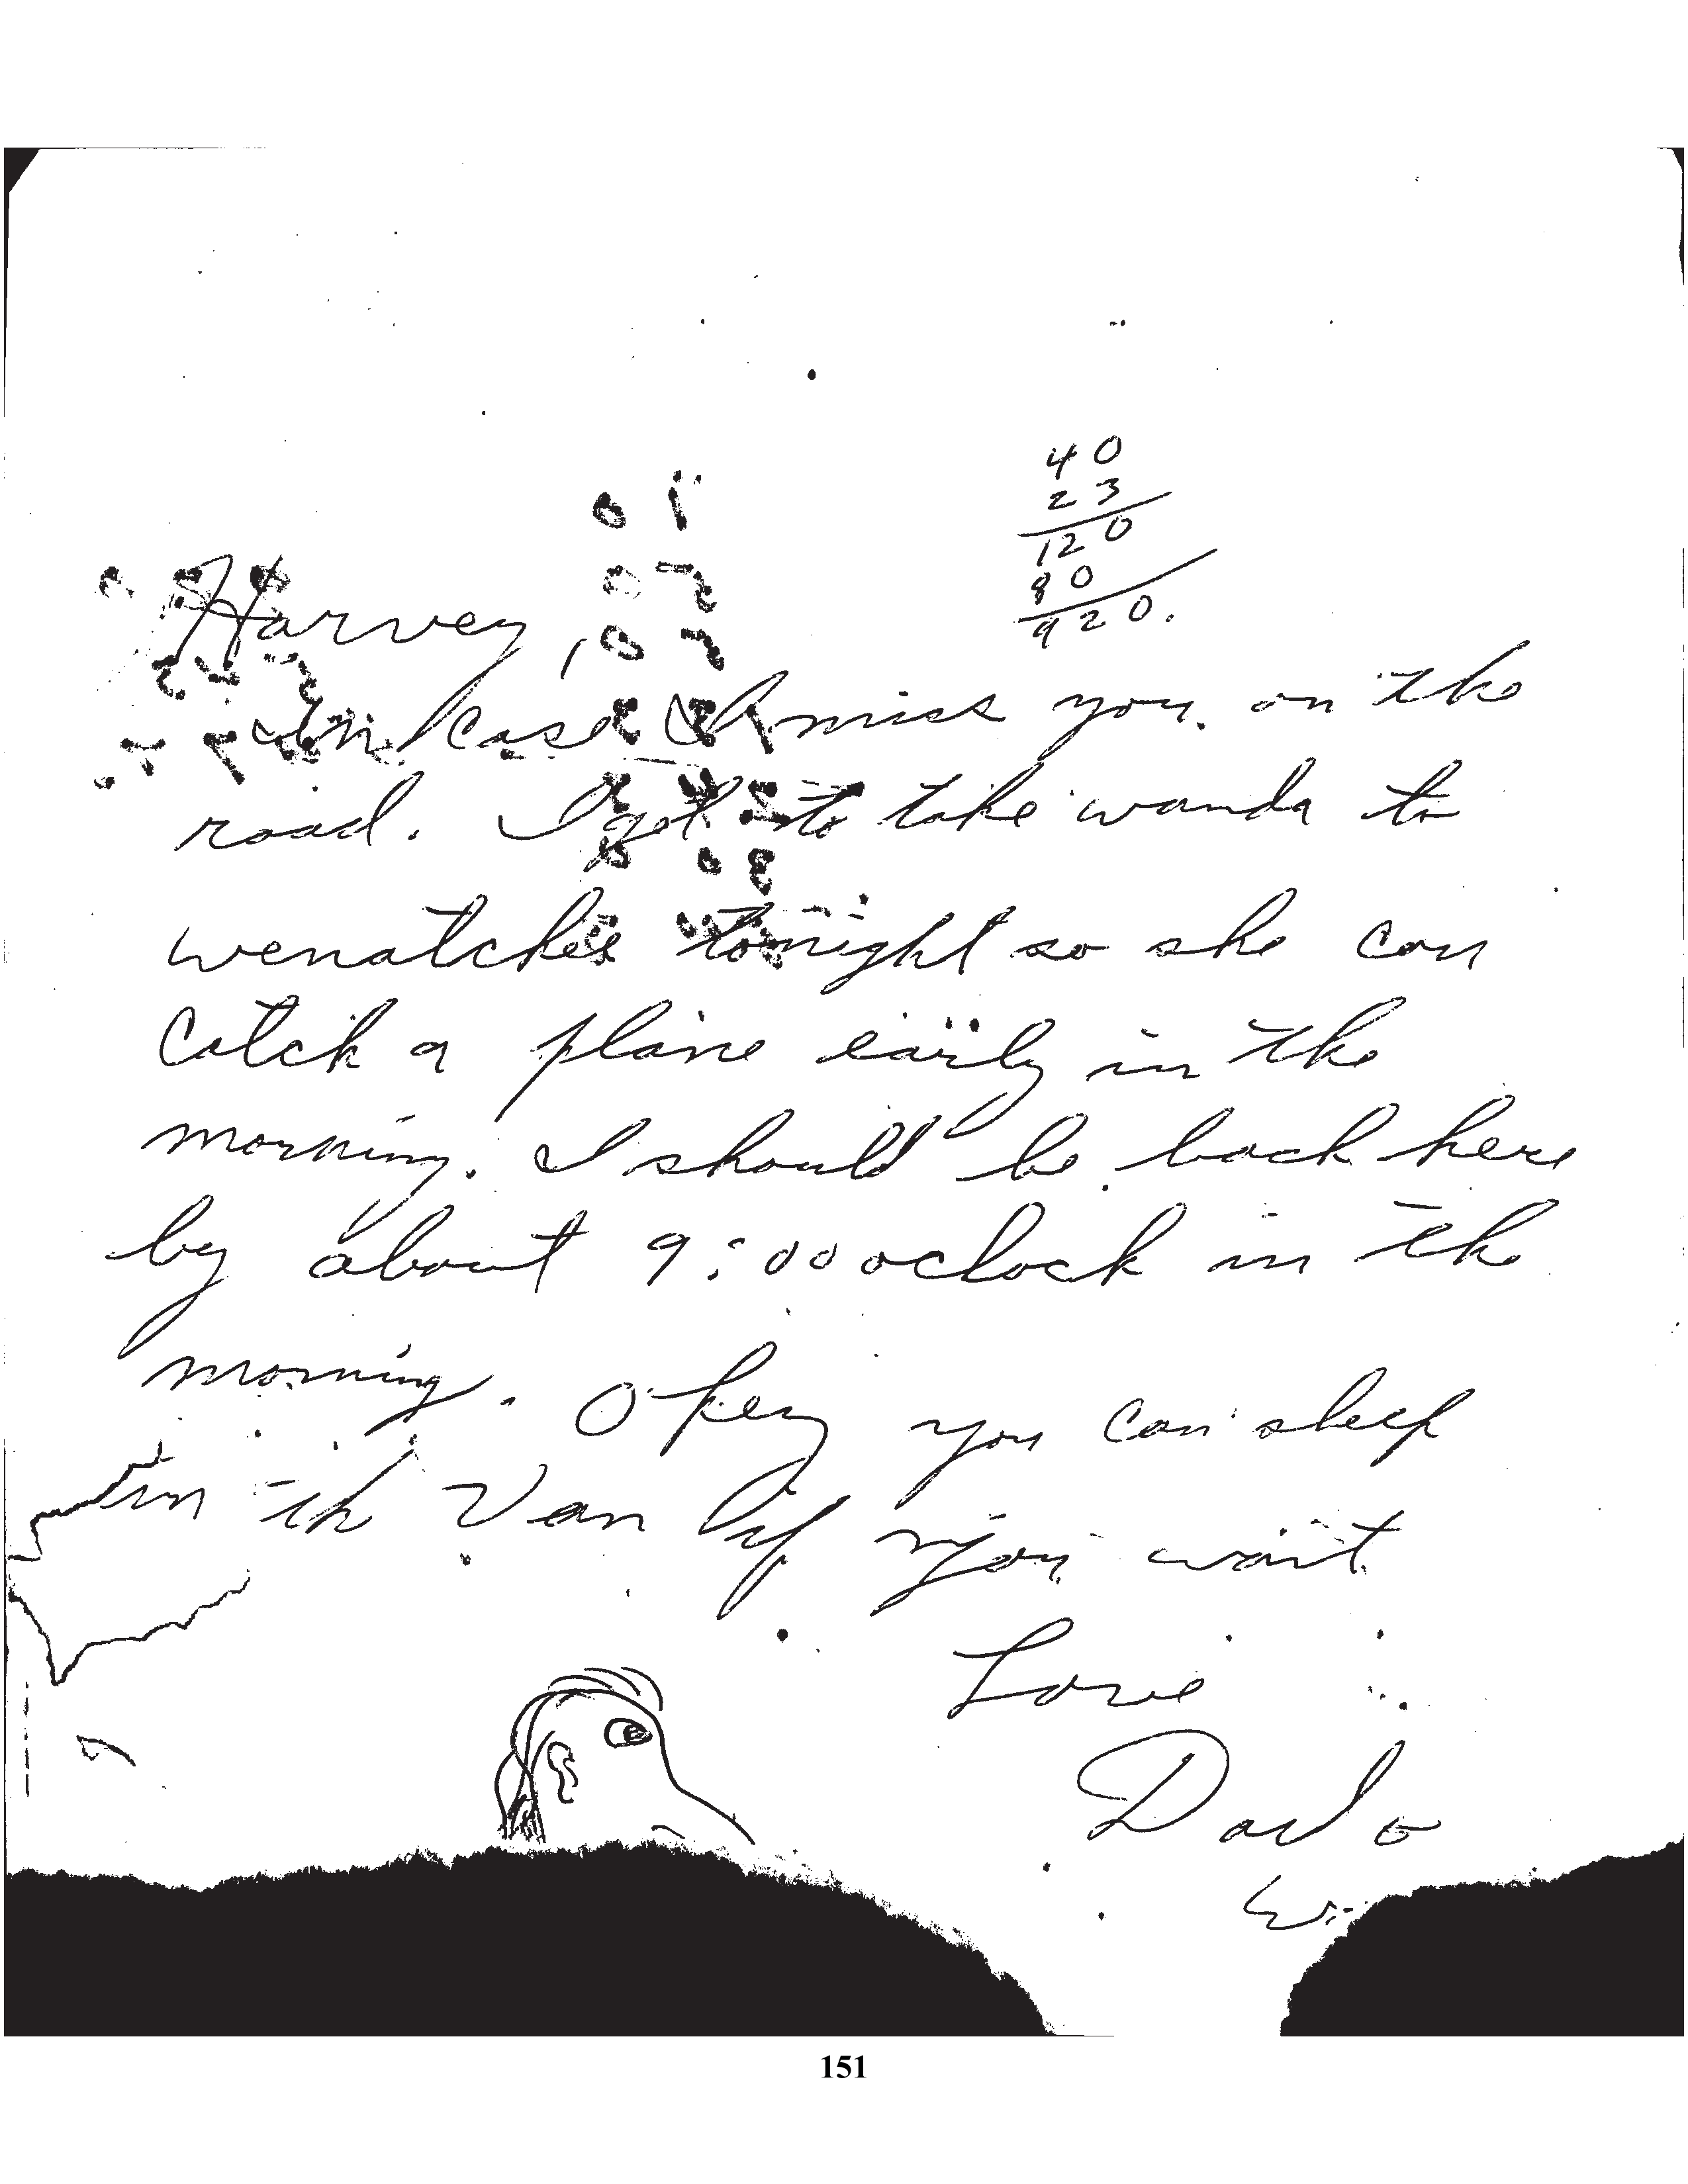 40
23
120
80
920.
Harvey,
In case I miss you on the
road. I got to take wanda to
wenatchee tonight so she can
Catch a plane early in the
morning. I should be back here
by about 9:00 oclock in the
morning. Okey you can sleep
in th Van if you want
Love
Dad
151